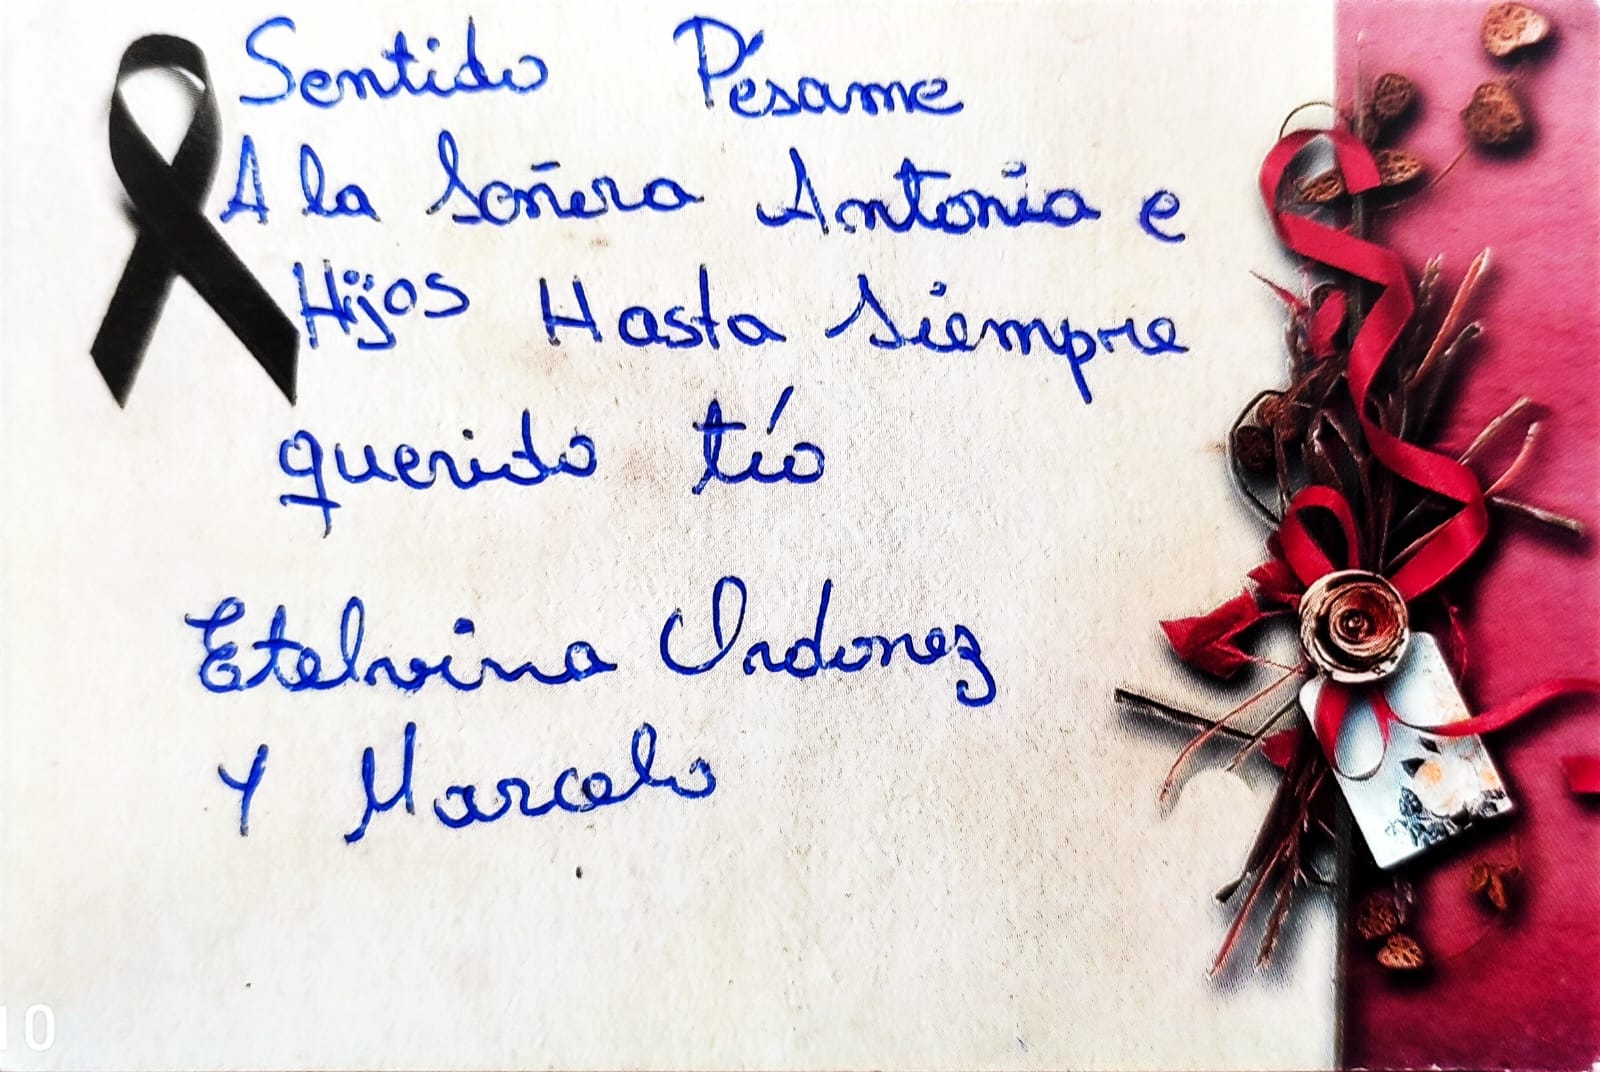 Sentido Pésame
A la Soñera Antonia e
Hijos Hasta Siempre
querido tío
Etelvina Ordonez
Y Marcelo
10